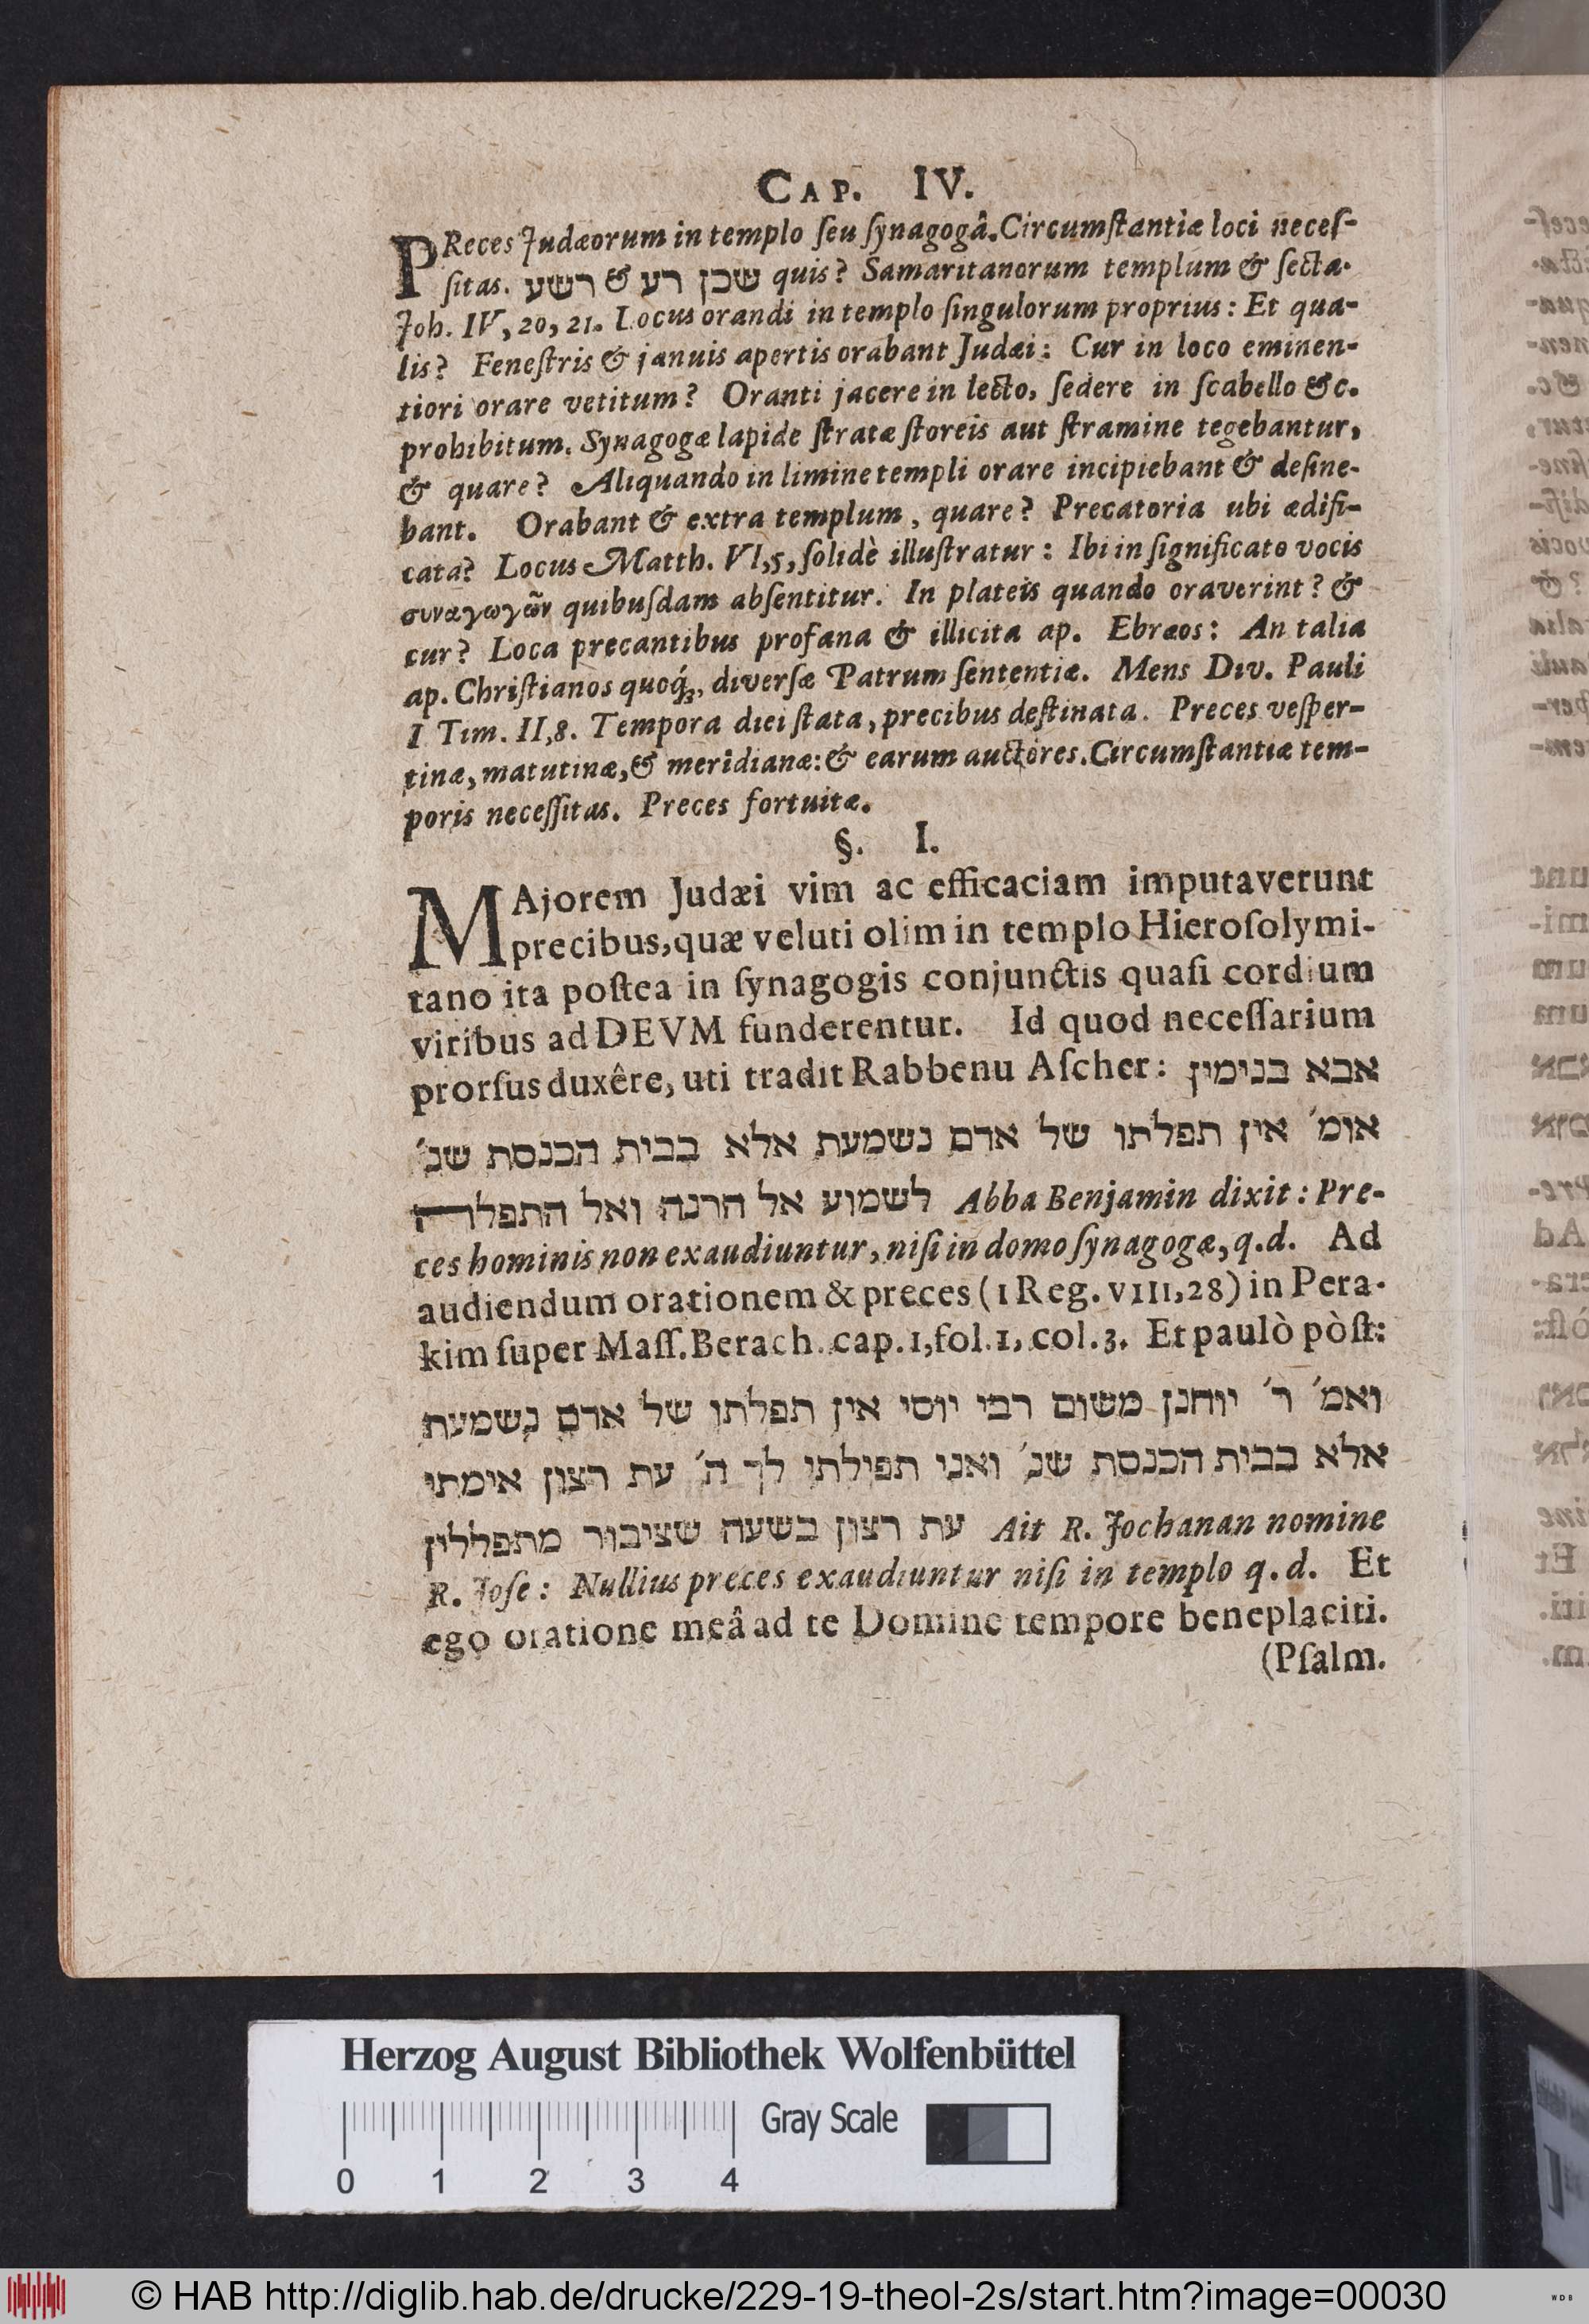 CAP. IV.
PReces Judæorum in templo ſeu ſynagogâ. Circumſtantiæ loci neceſ-
ſitas. שכן רע & רשע quis? Samaritanorum templum & ſecta.
Joh. IV, 20, 21. Locus orandi in templo ſingulorum proprius: Et qua-
lis? Feneſtris & januis apertis orabant Judæi: Cur in loco eminen-
tiori orare vetitum? Oranti jacere in lecto, ſedere in ſcabello &c.
prohibitum. Synagogæ lapide ſtratæ ſtoreis aut ſtramine tegebantur,
& quare? Aliquando in limine templi orare incipiebant & deſine-
bant. Orabant & extra templum, quare? Precatoria ubi ædifi-
cata? Locus Matth. VI,5, ſolidè illuſtratur: Ibi in ſignificato vocis
συναγωγῶν quibuſdam abſentitur. In plateis quando oraverint? &
cur? Loca precantibus profana & illicita ap. Ebræos: An talia
ap. Chriſtianos quoq́;, diverſæ Patrum ſententiæ. Mens Div. Pauli
I Tim. II,8. Tempora diei ſtata, precibus deſtinata. Preces veſper-
tinæ, matutinæ, & meridianæ: & earum auctores. Circumſtantiæ tem-
poris neceſſitas. Preces fortuitæ.
§. I.
MAjorem Judæi vim ac efficaciam imputaverunt
precibus, quæ veluti olim in templo Hieroſolymi-
tano ita poſtea in ſynagogis conjunctis quaſi cordium
viribus ad DEVM funderentur. Id quod neceſſarium
prorſus duxêre, uti tradit Rabbenu Aſcher: אבא בנימין
אומ׳ אין תפלתו של אדם נשמעת אלא בבית הכנסת שנ׳
לשמוע אל הרנה ואל התפלה Abba Benjamin dixit: Pre-
ces hominis non exaudiuntur, niſi in domo ſynagogæ, q.d. Ad
audiendum orationem & preces (1 Reg. VIII, 28) in Pera-
kim ſuper Maſſ. Berach. cap. 1, fol. 1, col. 3. Et paulò pòſt:
ואמ׳ ר׳ יוחנן משום רבי יוסי אין תפלתו של אדם נשמעת
אלא בבית הכנסת שנ׳ ואני תפילתי לך ה׳ עת רצון אימתי
עת רצון בשעה שציבור מתפללין Ait R. Jochanan nomine
R. Joſe: Nullius preces exaudiuntur niſi in templo q.d. Et
ego oratione meâ ad te Domine tempore beneplaciti.
(Pſalm.
Herzog August Bibliothek Wolfenbüttel
Gray Scale
0 1 2 3 4
© HAB http://diglib.hab.de/drucke/229-19-theol-2s/start.htm?image=00030
WDB